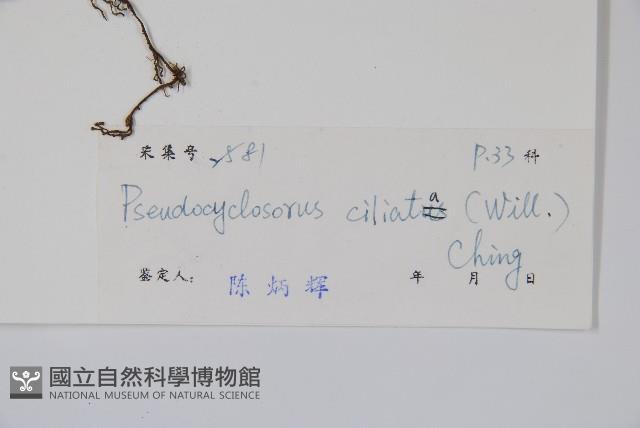 采集号 2581 P.33 科
Pseudocyclosorus ciliata (Will.)
Ching
鉴定人: 陈炳辉 年 月 日
國立自然科學博物館
NATIONAL MUSEUM OF NATURAL SCIENCE